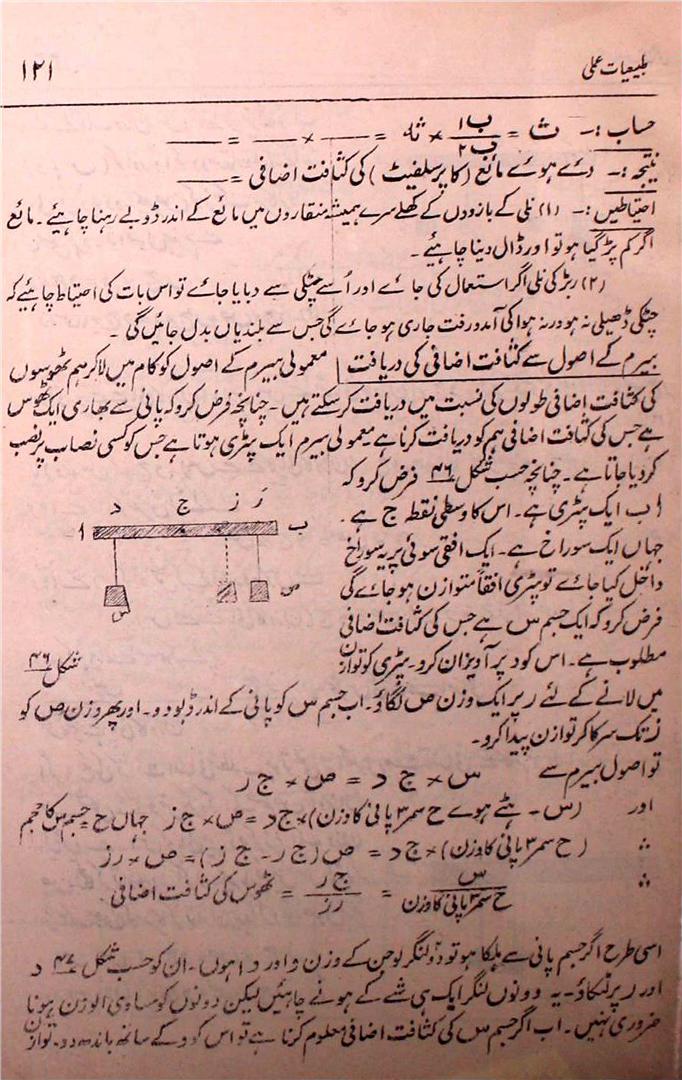 طبیعیات عملی ۱۲۱
حساب :- ث = ب۱ / ب۲ × ثہ = —— × —— = ——
نتیجہ :- دئے ہوئے مائع (کاپر سلفیٹ) کی کثافت اضافی = ——
احتیاطیں :- (۱) نلی کے بازووں کے کھلے سرے ہمیشہ منقاروں میں مائع کے اندر ڈوبے رہنا چاہیئے ۔ مائع
اگر کم پڑ گیا ہو تو اور ڈال دینا چاہیئے ۔
(۲) ربڑ کی نلی اگر استعمال کی جائے اور اُسے چٹکی سے دبایا جائے تو اس بات کی احتیاط چاہیئے کہ
چٹکی ڈھیلی نہ ہو ورنہ ہوا کی آمد و رفت جاری ہو جائے گی جس سے بلندیاں بدل جائیں گی ۔
بیرم کے اصول سے کثافت اضافی کی دریافت | معمولی بیرم کے اصول کو کام میں لا کر ہم ٹھوسوں
کی کثافت اضافی طولوں کی نسبت میں دریافت کر سکتے ہیں ۔ چنانچہ فرض کرو کہ پانی سے بھاری ایک ٹھوس
ہے جس کی کثافت اضافی ہم کو دریافت کرنا ہے معمولی بیرم ایک پٹری ہوتا ہے جس کو کسی نصاب پر نصب
کر دیا جاتا ہے ۔ چنانچہ حسب شکل ۴۶ فرض کرو کہ
ا ب ایک پٹری ہے ۔ اس کا وسطی نقطہ ج ہے ۔
جہاں ایک سوراخ ہے ۔ ایک افقی سوئی پر یہ سوراخ
داخل کیا جائے تو پٹری افقاً متوازن ہو جائے گی
فرض کرو کہ ایک جسم س ہے جس کی کثافت اضافی
مطلوب ہے ۔ اس کو د پر آویزاں کرو ۔ پٹری کو توازن
د ج ز رَ
ا ب
س ص
شکل ۴۶
میں لانے کے لئے ر پر ایک وزن ص لگاؤ ۔ اب جسم س کو پانی کے اندر ڈبو دو ۔ اور پھر وزن ص کو
ز تک سرکا کر توازن پیدا کرو ۔
تو اصول بیرم سے س × ج د = ص × ج ر
اور (س ۔ ہٹے ہوے ح سمر۳ پانی کا وزن) × ج د = ص × ج ز جہاں ح = جسم س کا حجم
∴ (ح سمر۳ پانی کا وزن) × ج د = ص (ج ر - ج ز) = ص × ر ز
∴ س / ح سمر۳ پانی کا وزن = ج ر / ر ز = ٹھوس کی کثافت اضافی
اسی طرح اگر جسم پانی سے ہلکا ہو تو دو لنگر لو جن کے وزن و اور د ا ہوں ۔ ان کو حسب شکل ۴۷ د
اور ر پر لٹکاؤ ۔ یہ دونوں لنگر ایک ہی شے کے ہونے چاہئیں لیکن دونوں کو مساوی الوزن ہونا
ضروری نہیں ۔ اب اگر جسم س کی کثافت اضافی معلوم کرنا ہے تو اس کو و کے ساتھ باندھ دو ۔ توازن